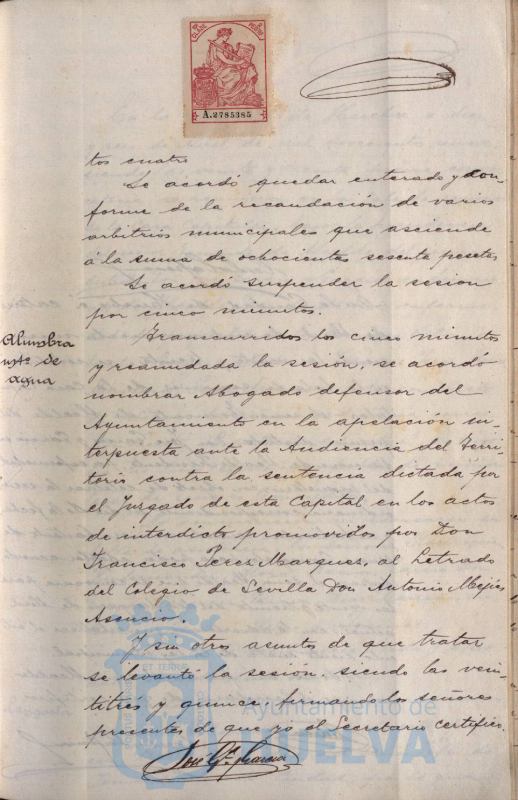 CLASE
A.2785385
tos cuatro
Se acordó quedar enterado y con-
forme de la recaudación de varios
arbitrios municipales que asciende
á la suma de ochocientas sesenta pesetas
Se acordó suspender la sesion
por cinco minutos.
Alumbra
mto de
agua
Transcurridos los cinco minutos
y reanudada la sesión, se acordó
nombrar Abogado defensor del
Ayuntamiento en la apelación in-
terpuesta ante la Audiencia del Terri-
torio contra la sentencia dictada por
el Juzgado de esta Capital en los actos
de interdicto promovidos por Don
Francisco Perez Marquez, al Letrado
del Colegio de Sevilla Don Antonio Mejías
Asencio.
Y sin otros asuntos de que tratar
se levantó la sesión, siendo las vein-
titres y quince, firmando los señores
presentes de que yo el Secretario certifico.
Ayuntamiento de
HUELVA